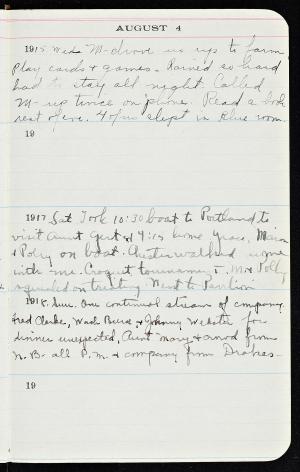 AUGUST 4
1915 Wed. M- drove us up to farm
Play cards & games. Rained so hard
had to stay all night. Called
M- up twice on 'phone. Read a book
rest of eve. 4 of us slept in blue room.
19
1917 Sat Took 10:30 boat to Portland to
visit Aunt Gert & 4:15 home Grace,
& Polly on boat. walked home
with me. Croquet tournament. M & Polly
squelched on treating Went to Pavilion
1918. Sun. One continual stream of company
Fred Clarke, & Johnny Webster for
dinner unexpected, Aunt Mary & crowd from
N. B. all P.M. & company from Drakes-
19